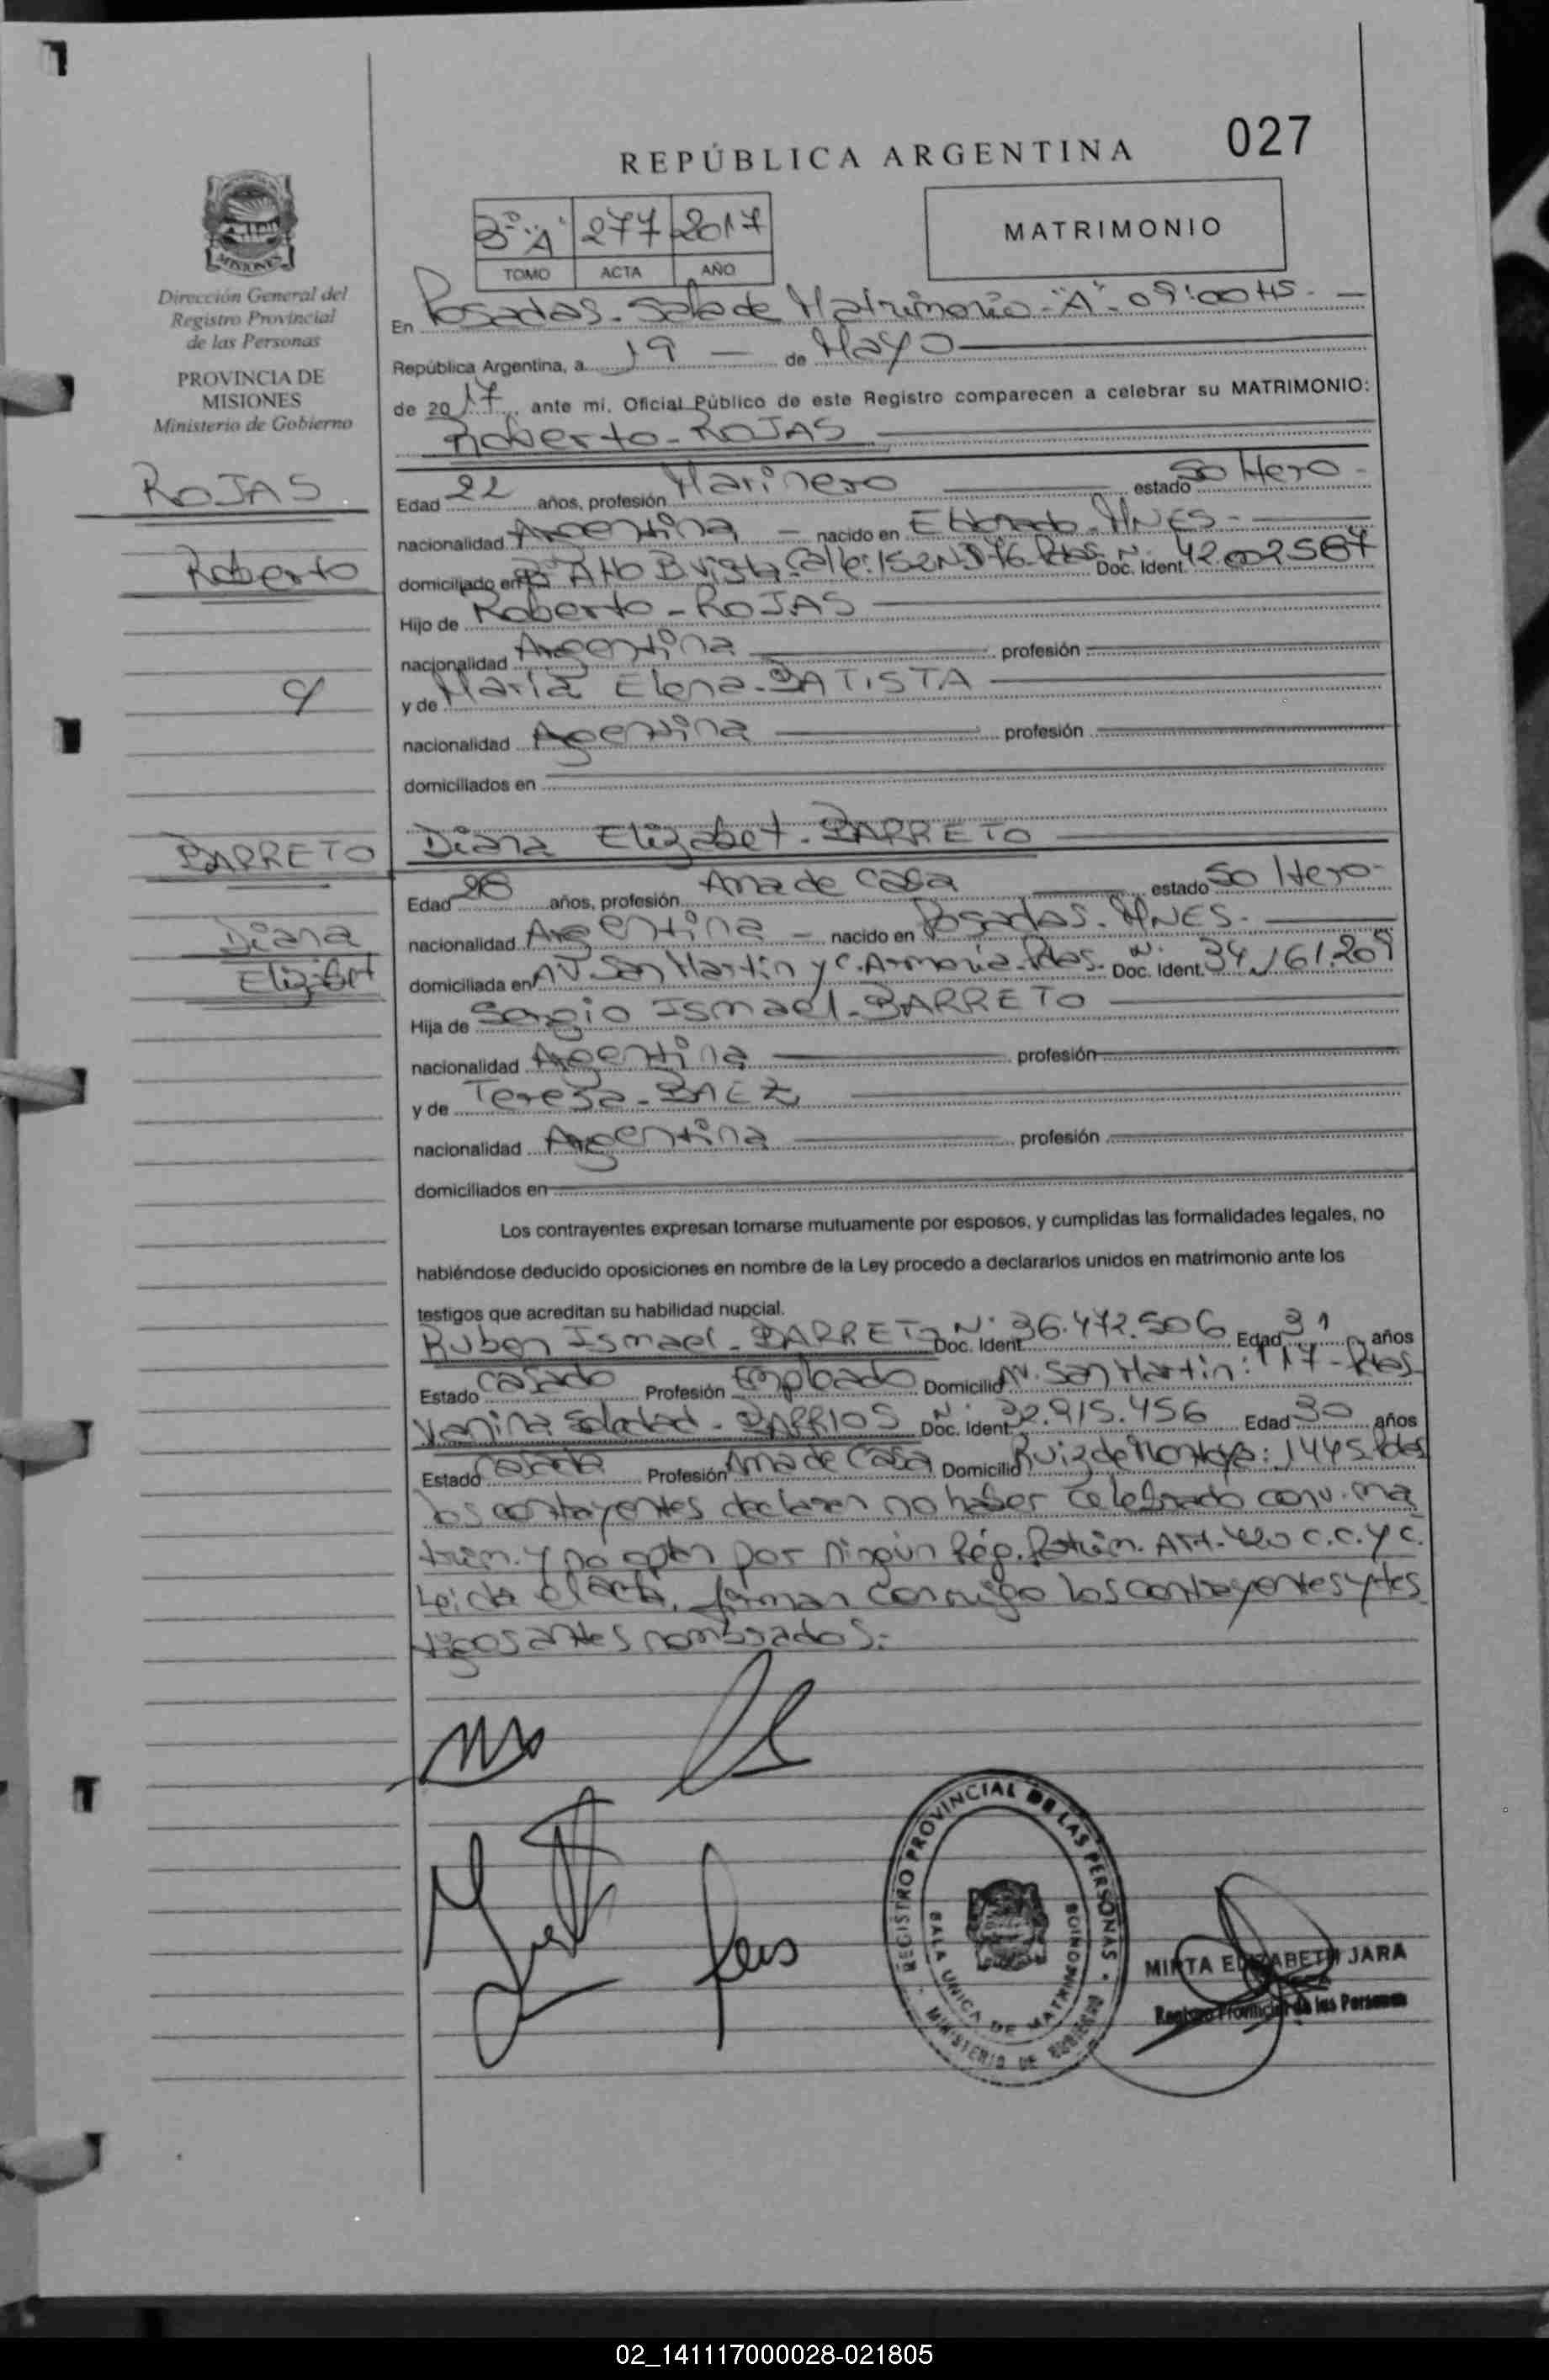 027
REPÚBLICA ARGENTINA
3º "A" 277 2017
TOMO ACTA AÑO
MATRIMONIO
MISIONES
Dirección General del
Registro Provincial
de las Personas
PROVINCIA DE
MISIONES
Ministerio de Gobierno
ROJAS
Roberto
c/
BARRETO
Diana
Elizabet
En Posadas - Sala de Matrimonio - "A" - 09:00 HS -
República Argentina, a 19 de Mayo
de 2017, ante mi, Oficial Público de este Registro comparecen a celebrar su MATRIMONIO:
Roberto - ROJAS
Edad 22 años, profesión Marinero estado Soltero -
nacionalidad Argentina - nacido en Eldorado - MNES -
domiciliado en Bº Alto B. Vista - Calle: 152 Nº Pdas. Doc. Ident. Nº 42.002587
Hijo de Roberto - ROJAS
nacionalidad Argentina profesión
y de María Elena - BATISTA
nacionalidad Argentina profesión
domiciliados en
Diana Elizabet - BARRETO
Edad 28 años, profesión Ama de Casa estado Soltero -
nacionalidad Argentina - nacido en Posadas - MNES -
domiciliada en AV. San Martín y C. Armonia - Pdas. Doc. Ident. Nº 34.161.209
Hija de Sergio Ismael - BARRETO
nacionalidad Argentina profesión
y de Teresa - BAEZ
nacionalidad Argentina profesión
domiciliados en
Los contrayentes expresan tomarse mutuamente por esposos, y cumplidas las formalidades legales, no
habiéndose deducido oposiciones en nombre de la Ley procedo a declararlos unidos en matrimonio ante los
testigos que acreditan su habilidad nupcial.
Ruben Ismael - BARRETO Doc. Ident. Nº 36.472.506 Edad 31 años
Estado Casado Profesión Empleado Domicilio AV. San Martin: 117 - Pdas.
Vanina Soledad - BARRIOS Doc. Ident. Nº 32.915.456 Edad 30 años
Estado Casada Profesión Ama de Casa Domicilio Ruiz de Montoya: 1445 Pdas
Los contrayentes declaran no haber celebrado conv. ma
trim. y no optan por ningún Rég. Patrim. Art. 420 C.C. y C.
Leída el acta, firman conmigo los contrayentes y tes
tigos antes nombrados.-
REGISTRO PROVINCIAL DE LAS PERSONAS
SALA UNICA DE MATRIMONIOS
MINISTERIO DE GOBIERNO
MIRTA ELIZABETH JARA
Registro Provincial de las Personas
02_141117000028-021805